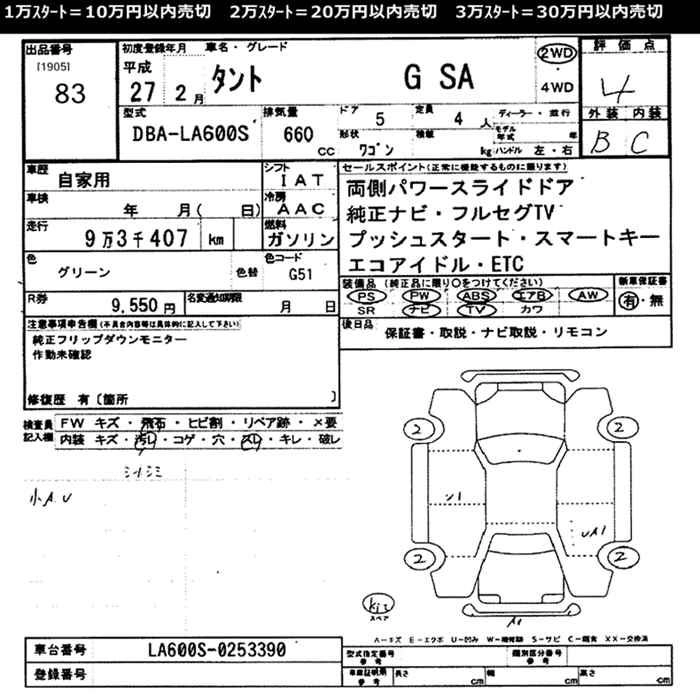 1万スタート＝10万円以内売切　2万スタート＝20万円以内売切　3万スタート＝30万円以内売切
出品番号
[1905]
83
初度登録年月
平成
27 2月
車名・グレード
タント G SA
2WD
4WD
評価点
4
外装 内装
B C
型式
DBA-LA600S
排気量
660 cc
ドア 5
定員 4 人
形状 ワゴン
積載 kg
ディーラー・並行
モデル年式 年
ハンドル 左・右
車歴 自家用
シフト IAT
車検 年 月( 日)
冷房 AAC
走行 9万3千407 km
燃料 ガソリン
色 グリーン
色替
色コード G51
R券 9,550円
名変通知期限 月 日
セールスポイント(正常に機能するものに限ります)
両側パワースライドドア
純正ナビ・フルセグTV
プッシュスタート・スマートキー
エコアイドル・ETC
装備品 (純正品に限り○をつけてください)
PS PW ABS エアB AW
SR ナビ TV カワ
新車保証書
有・無
後日品 保証書・取説・ナビ取説・リモコン
注意事項申告欄(不具合内容等は具体的に記入して下さい)
純正フリップダウンモニター
作動未確認
修復歴 有〔箇所 〕
検査員記入欄
FW キズ・飛石・ヒビ割・リペア跡・×要
内装 キズ・汚レ・コゲ・穴・スレ・キレ・破レ
シートシミ
小AU
2
2
2
2
UA1
A1
kit
スペア
A-キズ E-エクボ U-凹み W-補修跡 S-サビ C-腐食 XX-交換済
車台番号 LA600S-0253390
登録番号
型式指定番号
参考
類別区分番号
参考
車庫証明用
参考
長さ cm 幅 cm 高さ cm